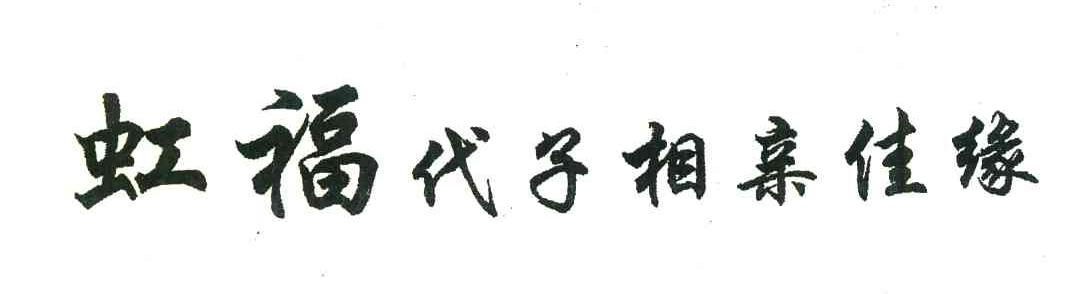 虹福代子相亲佳缘